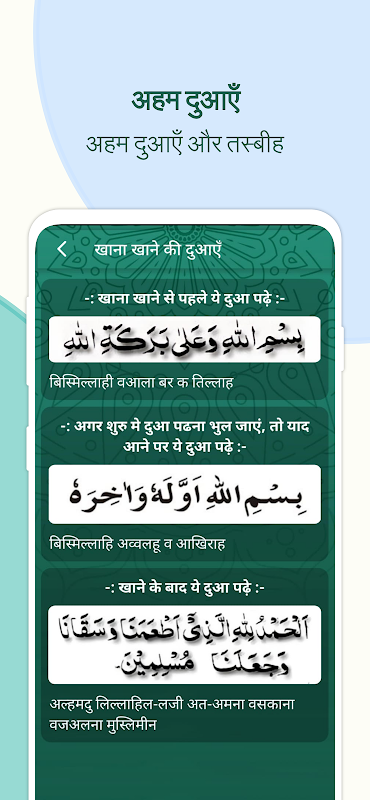 अहम दुआएँ
अहम दुआएँ और तस्बीह
खाना खाने की दुआएँ
-: खाना खाने से पहले ये दुआ पढ़े :-
بِسْمِ اللهِ وَعَلٰى بَرَكَةِ اللهِ
बिस्मिल्लाही वआला बर क तिल्लाह
-: अगर शुरु मे दुआ पढना भुल जाएं, तो याद
आने पर ये दुआ पढ़े :-
بِسْمِ اللهِ اَوَّلَهٗ وَاٰخِرَهٗ
बिस्मिल्लाहि अव्वलहू व आखिराह
-: खाने के बाद ये दुआ पढ़े :-
اَلْحَمْدُ لِلّٰهِ الَّذِىْٓ اَطْعَمَنَا وَسَقَانَا
وَجَعَلَنَا مُسْلِمِيْنَ۔
अल्हमदु लिल्लाहिल-लजी अत-अमना वसकाना
वजअलना मुस्लिमीन